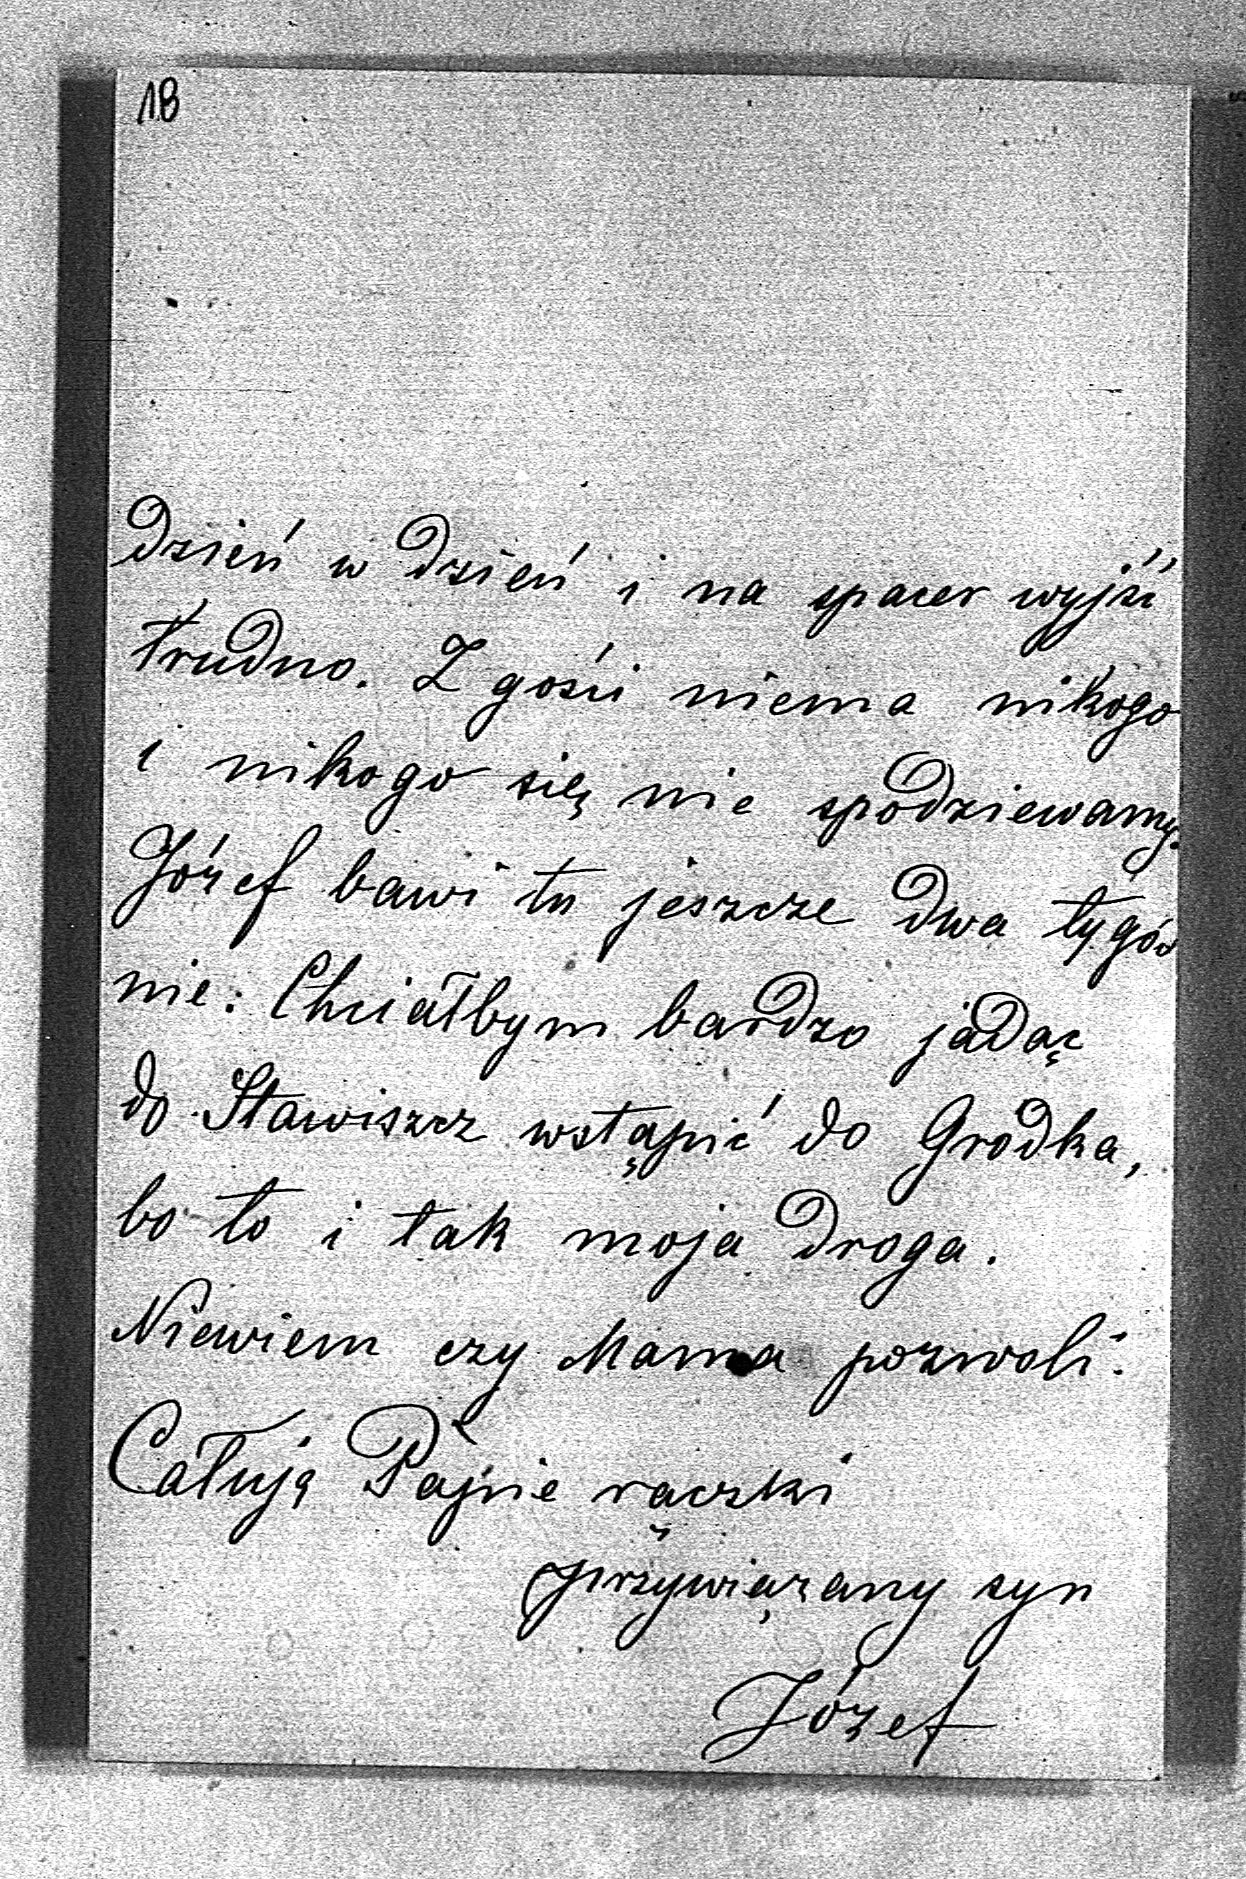 18
dzień w dzień i na spacer wyjść
trudno. Z gości niema nikogo
i nikogo się nie spodziewamy.
Józef bawi tu jeszcze dwa tygod
nie. Chciałbym bardzo jadąc
do Stawiszcz wstąpić do Grodka,
bo to i tak moja droga.
Niewiem czy Mama pozwoli.
Całuję rączki
przywiązany syn
Józef